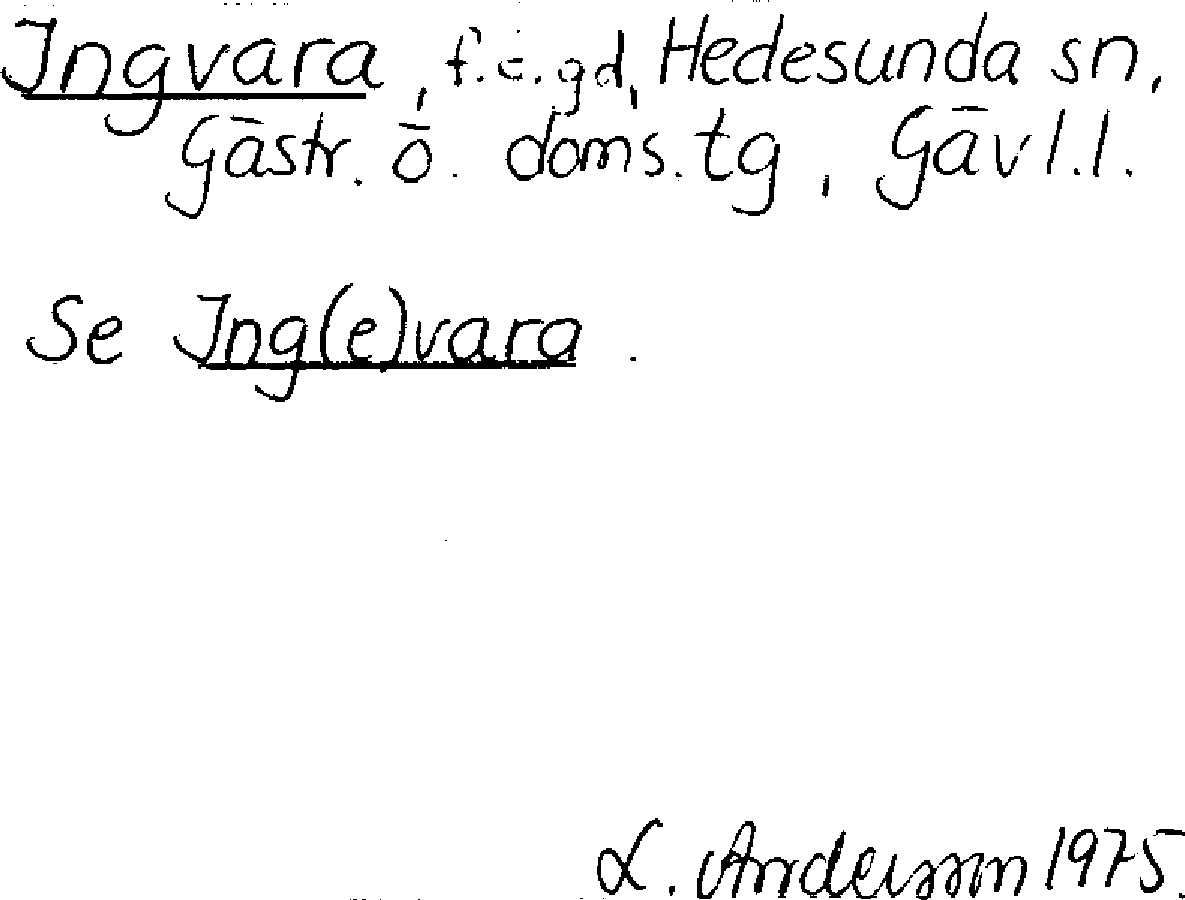 Ingvara, f.e.gd, Hedesunda sn,
Gästr. ö. doms.tg, Gävl.l.
Se Ing(e)vara.
L. Andersson 1975.